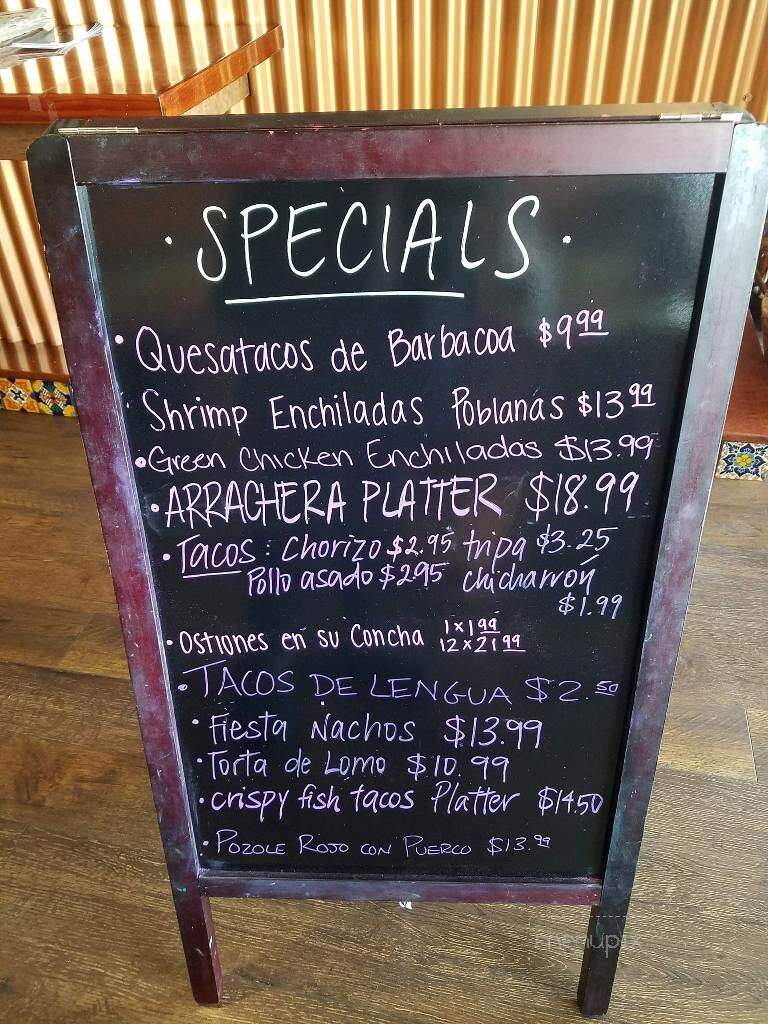 · SPECIALS ·
· Quesatacos de Barbacoa $9.99
· Shrimp Enchiladas Poblanas $13.99
· Green Chicken Enchiladas $13.99
· ARRACHERA PLATTER $18.99
· Tacos: chorizo $2.95 tripa $3.25
Pollo asado $2.95 chicharrón
$1.99
· Ostiones en su Concha 1x1.99
12x21.99
· TACOS DE LENGUA $2.50
· Fiesta Nachos $13.99
· Torta de Lomo $10.99
· crispy fish tacos Platter $14.50
· Pozole Rojo con Puerco $13.99
menupix